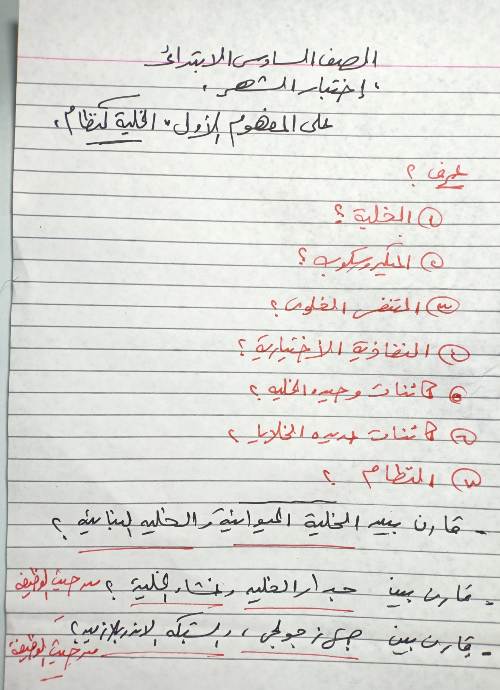 الصف السادس الابتدائى
إختبار الشهر
على المفهوم الأول " الخلية كنظام "
عرف ؟
① الخلية ؟
② الميكروسكوب ؟
③ التنفس الخلوى ؟
④ النفاذية الاختيارية ؟
⑤ كائنات وحيده الخليه ؟
⑥ كائنات عديده الخلايا ؟
⑦ النظام ؟
- قارن بين الخلية الحيوانية والخليه النباتية ؟
- قارن بين جدار الخليه وغشاء الخلية ؟ من حيث الوظيفة
- قارن بين جهاز جولجى ، والشبكه الاندوبلازميه ؟ من حيث الوظيفة